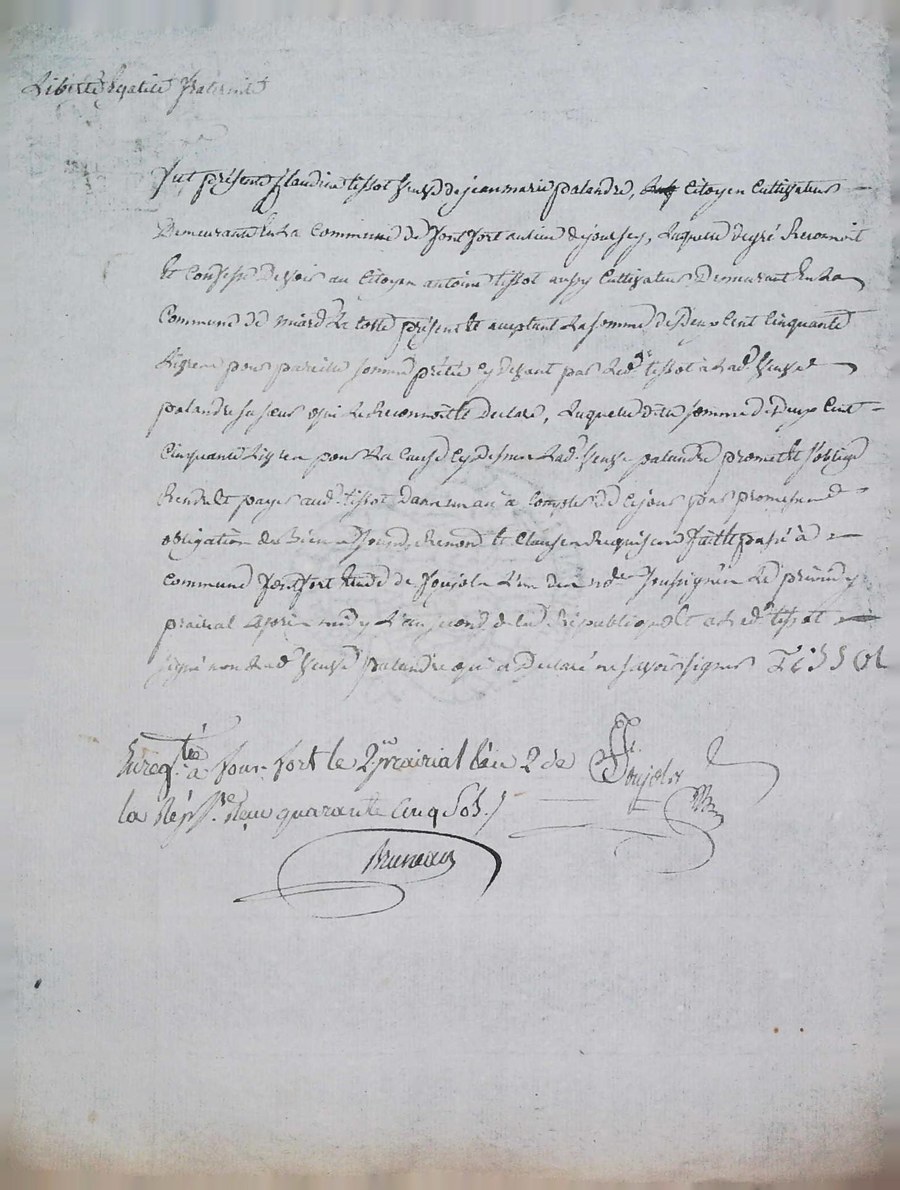 Liberté Egalité fraternité
fut présente Claudine tissot veuve de jean marie palandre, Citoyen Cultivateur
Demeurant En La Commune de fontfort au lieu de joursey, Laquelle de gré Reconnoit
Et Confesse Devoir au Citoyen antoine tissot aussy Cultivateur Demeurant En La
Commune de La Coste présent Et acceptant La somme de Deux Cent Cinquante
Livres pour pareille somme prêtée Cy devant par Led. tissot à Lad. veuve
palandre sa sœur qui Le Reconnoit Et declare, Laquelle dite somme de Deux Cent
Cinquante Livres pour La Cause Cy Dessus Lad. veuve palandre promet Et s'oblige
Rendre Et payer aud. tissot Dans un an à Compter de Ce jour par promesse
obligation de Biens Et Clauses Requises fait Et passé à
Commune fontfort Etude de L'un des no.res soussignés Le premier
prairial après midy L'an second de la République Et a Led. tissot
signé non Lad. veuve palandre qui a Declaré ne savoir signer TISSOT
Enreg.tré à font-fort le 2 prairial l'an 2 de
la Rép.e Reçu quarante Cinq Sols ./